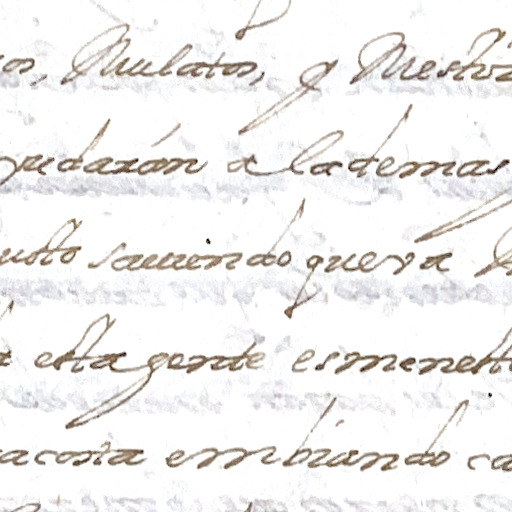 os, Mulatos, y Mestiz
yudarán a la demas
usto saviendo que va
a esta gente es menest
a costa embiando ca